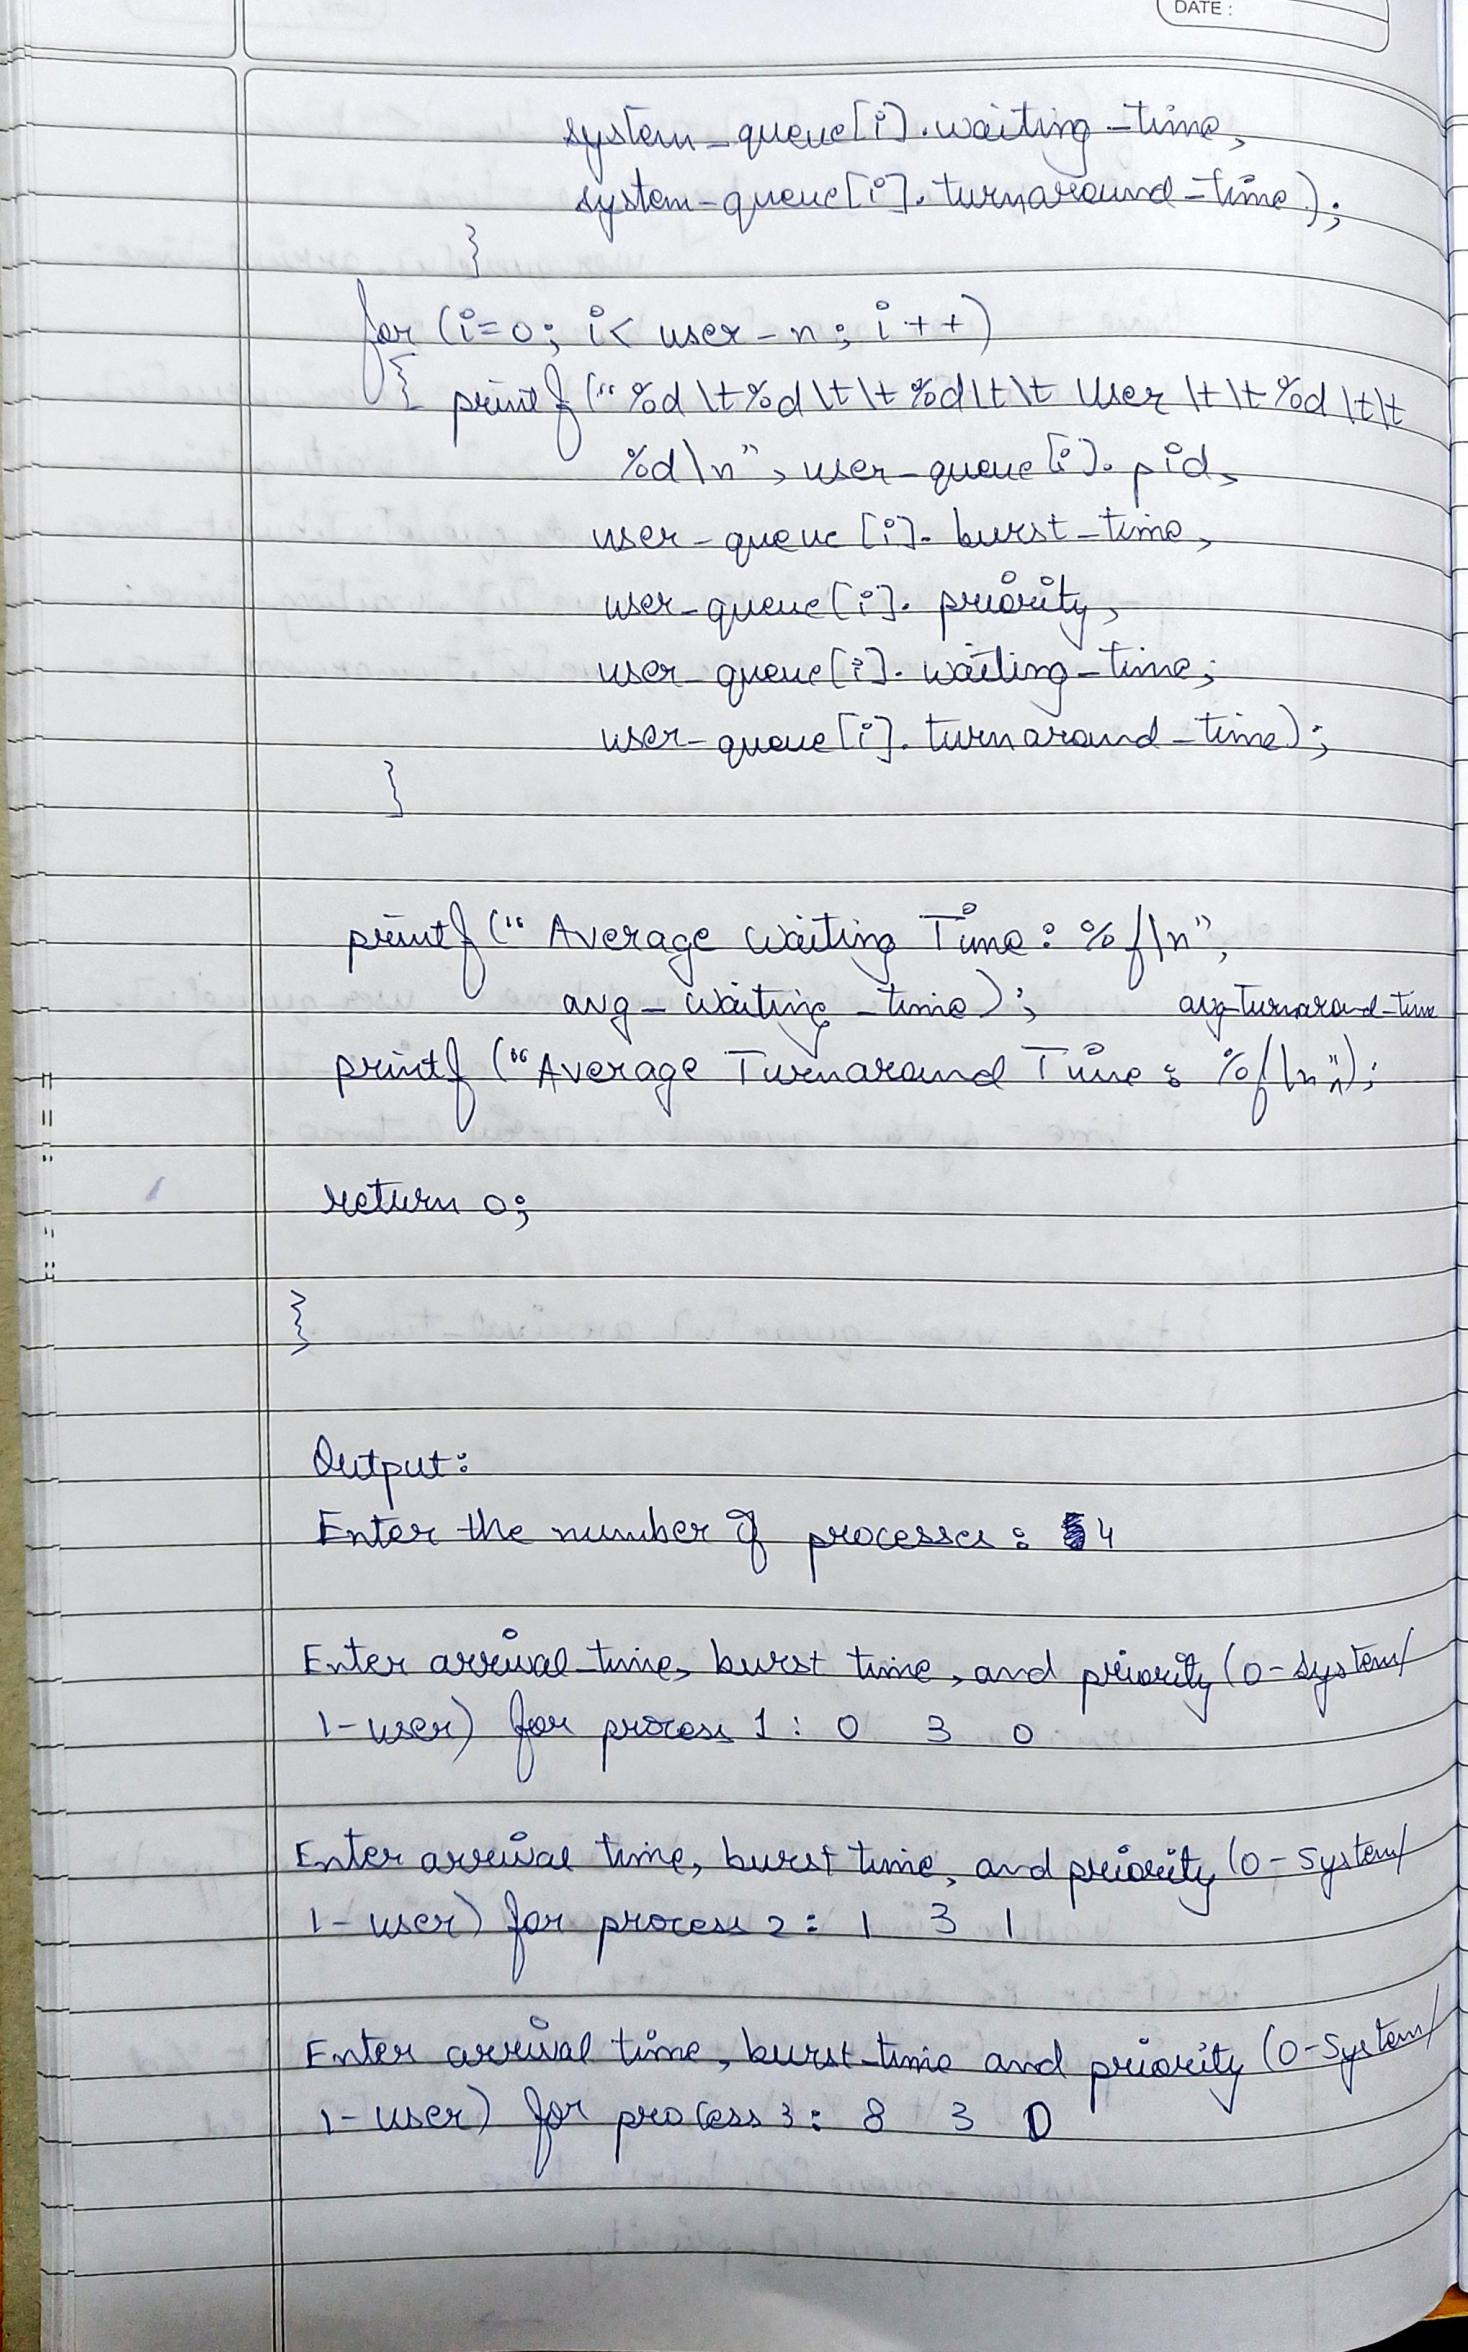 DATE :
system_queue[i].waiting_time,
system_queue[i].turnaround_time);
}
for (i=0; i< user_n; i++)
{ printf("%d\t%d\t\t%d\t\t User \t\t%d\t\t
%d\n", user_queue[i].pid,
user_queue[i].burst_time,
user_queue[i].priority,
user_queue[i].waiting_time;
user_queue[i].turnaround_time);
}
printf("Average Waiting Time: %f\n",
avg_waiting_time); avg_turnaround_time
printf("Average Turnaround Time: %f\n",);
return 0;
}
Output:
Enter the number of processes: 4
Enter arrival time, burst time, and priority (0-system/
1-user) for process 1: 0 3 0
Enter arrival time, burst time, and priority (0-System/
1-user) for process 2: 1 3 1
Enter arrival time, burst time and priority (0-System/
1-user) for process 3: 8 3 0